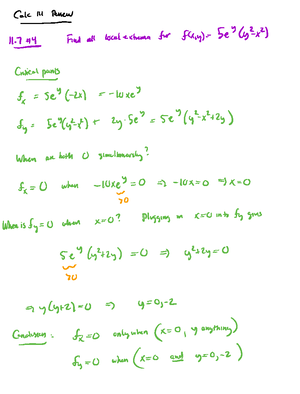 Calc III Review
11.7 #4 Find all local extrema for f(x,y) = 5e^y(y²-x²)
Critical points
f_x = 5e^y(-2x) = -10xe^y
f_y = 5e^y(y²-x²) + 2y·5e^y = 5e^y(y²-x²+2y)
When are both 0 simultaneously?
f_x = 0 when -10xe^y = 0 ⇒ -10x = 0 ⇒ x = 0
>0
When is f_y = 0 when x = 0? Plugging in x = 0 into f_y gives
5e^y(y²+2y) = 0 ⇒ y²+2y = 0
>0
⇒ y(y+2) = 0 ⇒ y = 0, -2
Conclusion: f_x = 0 only when (x = 0, y anything)
f_y = 0 when (x = 0 and y = 0, -2)